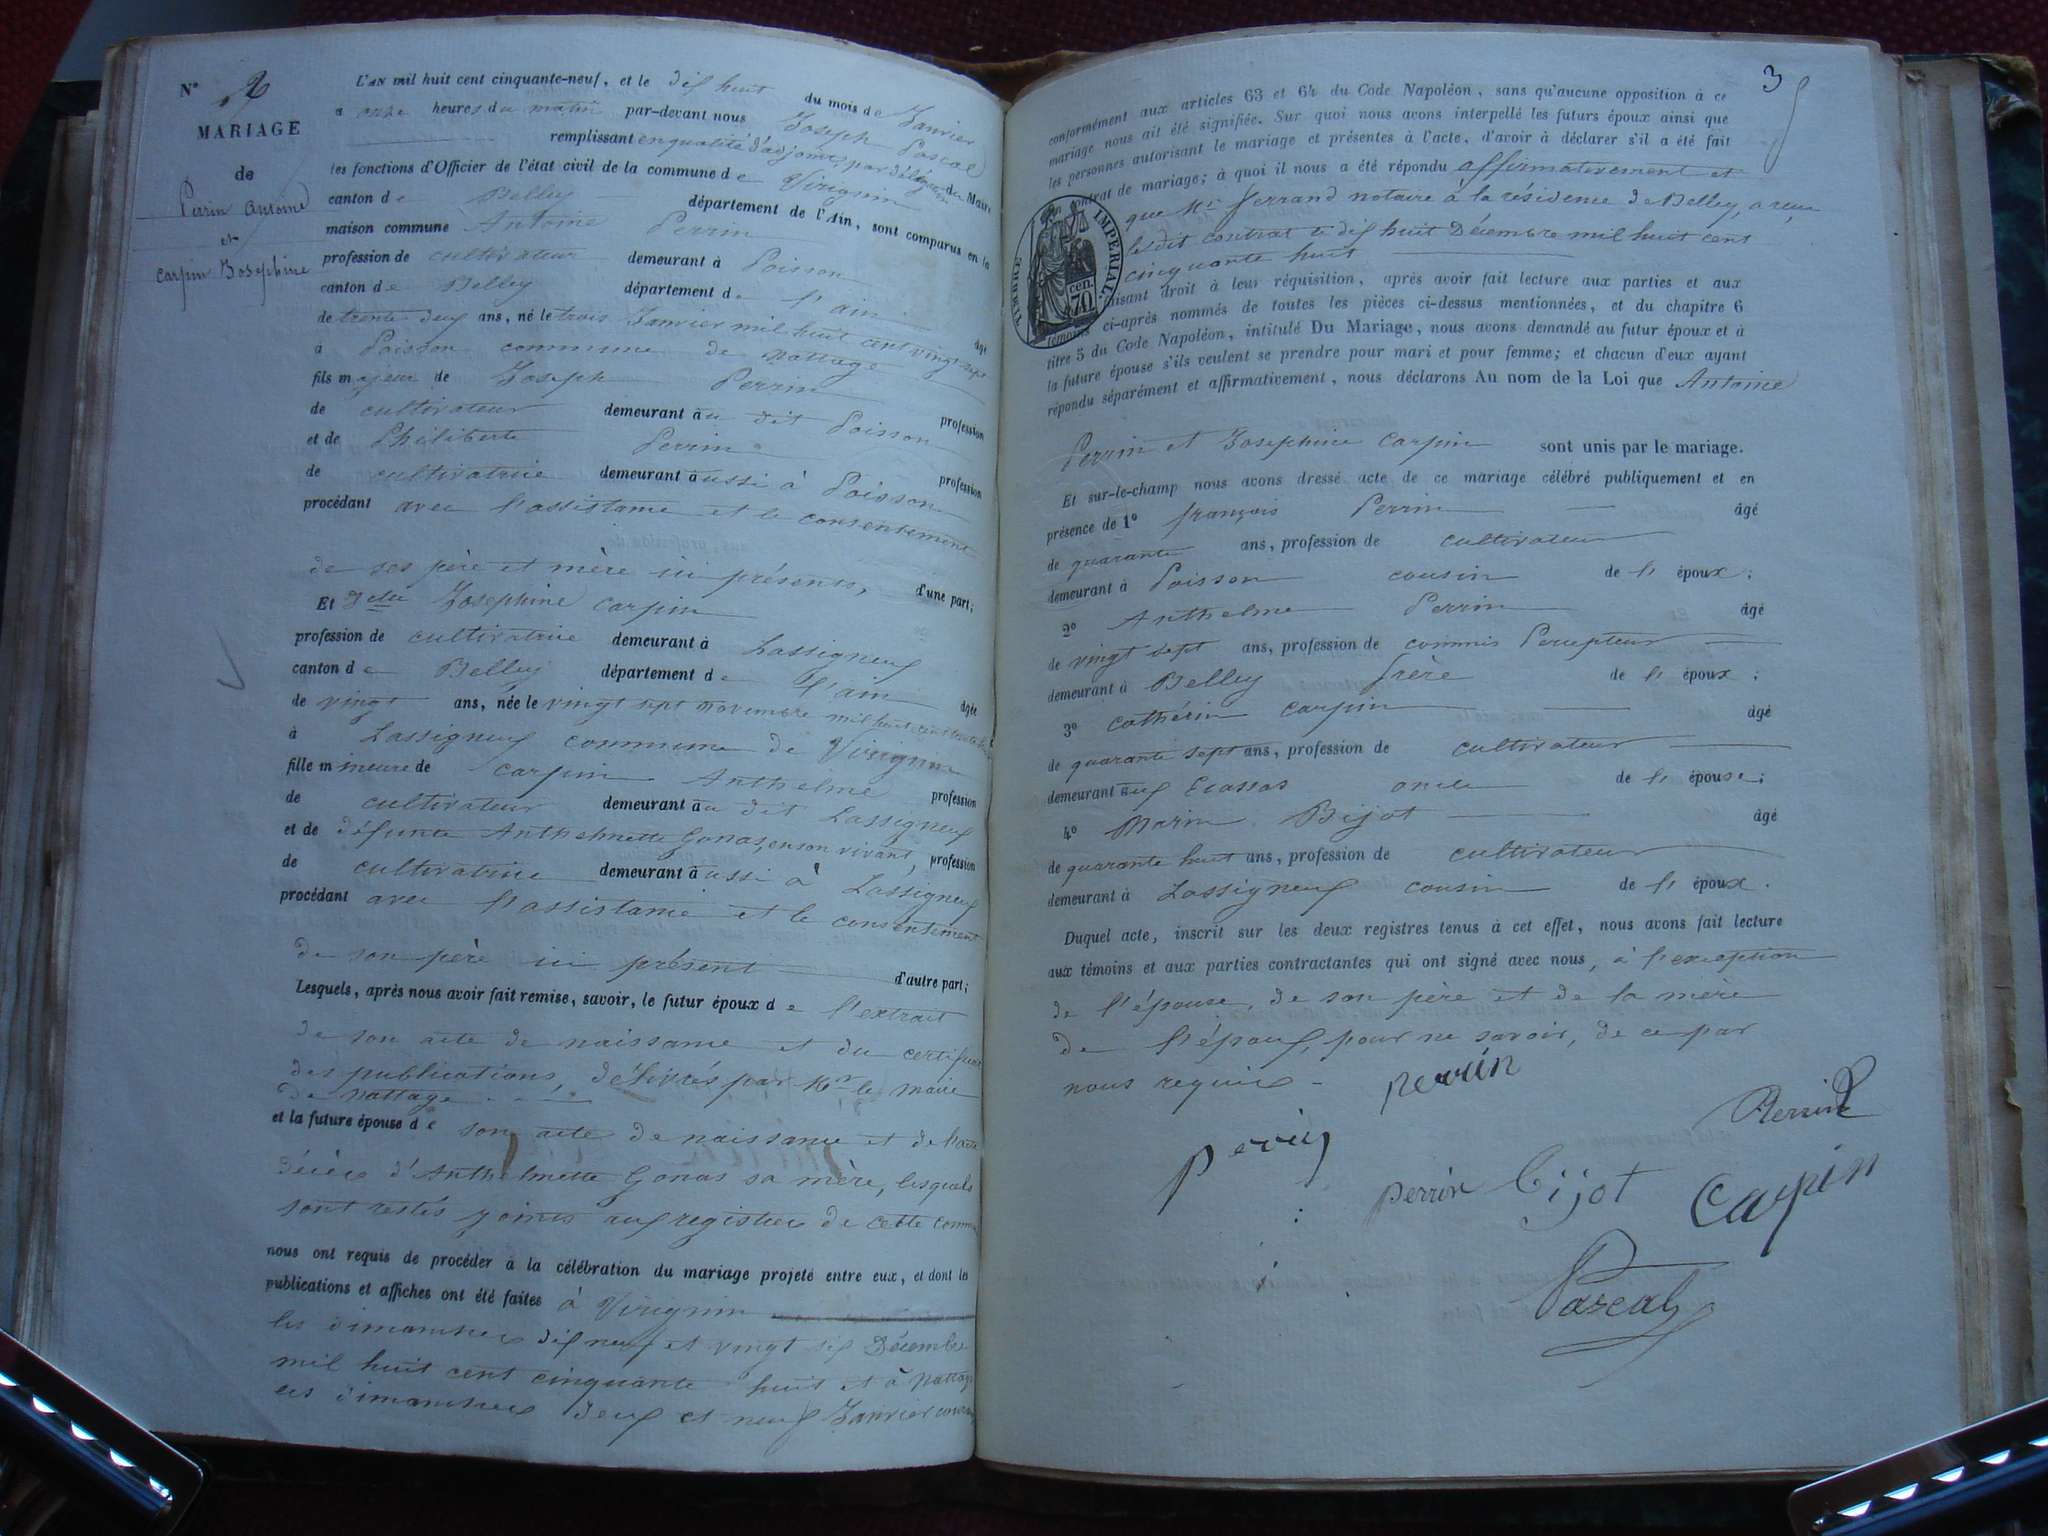 N° 2
MARIAGE
de
Perrin Antoine
et
Carpin Josephine
L'AN mil huit cent cinquante-neuf, et le dix huit du mois de Janvier
a onze heures du matin par-devant nous Joseph Pascal
remplissant en qualité d'adjoint, par délégation du Maire
les fonctions d'Officier de l'état civil de la commune de Virignin
canton de Belley département de l'Ain, sont comparus en la
maison commune Antoine Perrin
profession de cultivateur demeurant à Poisson
canton de Belley département de l'ain âgé
de trente deux ans, né le trois Janvier mil huit cent vingt sept
à Poisson commune de Nattage
fils majeur de Joseph Perrin profession
de cultivateur demeurant au dit Poisson
et de Philiberte Perrin profession
de cultivatrice demeurant aussi à Poisson
procédant avec l'assistance et le consentement
de ses père et mère ici présents, d'une part;
Et Delle Josephine Carpin
profession de cultivatrice demeurant à Lassigneux
canton de Belley département de l'ain âgée
de vingt ans, née le vingt sept novembre mil huit cent trente huit
à Lassigneux commune de Virignin
fille mineure de Carpin Anthelme profession
de cultivateur demeurant au dit Lassigneux
et de défunte Anthelmette Gonas, en son vivant, profession
de cultivatrice demeurant aussi à Lassigneux
procédant avec l'assistance et le consentement
de son père ici présent d'autre part;
Lesquels, après nous avoir fait remise, savoir, le futur époux de l'extrait
de son acte de naissance et du certificat
des publications, délivrés par Mr le maire
de Nattage
et la future épouse de son acte de naissance et de l'acte
décès d'Anthelmette Gonas sa mère, lesquels
sont restés joints aux registres de cette commune
nous ont requis de procéder à la célébration du mariage projeté entre eux, et dont les
publications et affiches ont été faites à Virignin
les dimanches dix neuf et vingt six Décembre
mil huit cent cinquante huit et à Nattage
les dimanches deux et neuf Janvier courant
3
conformément aux articles 63 et 64 du Code Napoléon, sans qu'aucune opposition à ce
mariage nous ait été signifiée. Sur quoi nous avons interpellé les futurs époux ainsi que
les personnes autorisant le mariage et présentes à l'acte, d'avoir à déclarer s'il a été fait
un contrat de mariage; à quoi il nous a été répondu affirmativement et
que Me Ferrand notaire à la résidence de Belley, a reçu
le dit contrat le dix huit Décembre mil huit cent
cinquante huit
TIMBRE IMPÉRIAL
70 cen.
Faisant droit à leur réquisition, après avoir fait lecture aux parties et aux
témoins ci-après nommés de toutes les pièces ci-dessus mentionnées, et du chapitre 6
titre 5 du Code Napoléon, intitulé Du Mariage, nous avons demandé au futur époux et à
la future épouse s'ils veulent se prendre pour mari et pour femme; et chacun d'eux ayant
répondu séparément et affirmativement, nous déclarons Au nom de la Loi que Antoine
Perrin et Josephine Carpin sont unis par le mariage.
Et sur-le-champ nous avons dressé acte de ce mariage célébré publiquement et en
présence de 1° françois Perrin âgé
de quarante ans, profession de cultivateur
demeurant à Poisson cousin de l' époux;
2° Anthelme Perrin âgé
de vingt sept ans, profession de commis Percepteur
demeurant à Belley frère de l' époux;
3° Cathérin Carpin âgé
de quarante sept ans, profession de cultivateur
demeurant aux Ecassas oncle de l' épouse;
4° Marin Bijot âgé
de quarante huit ans, profession de cultivateur
demeurant à Lassigneux cousin de l' époux.
Duquel acte, inscrit sur les deux registres tenus à cet effet, nous avons fait lecture
aux témoins et aux parties contractantes qui ont signé avec nous, à l'exception
de l'épouse, de son père et de la mère
de l'époux, pour ne savoir, de ce par
nous requis -
perrin
Perrin
perrin
perrin bijot Carpin
Pascal